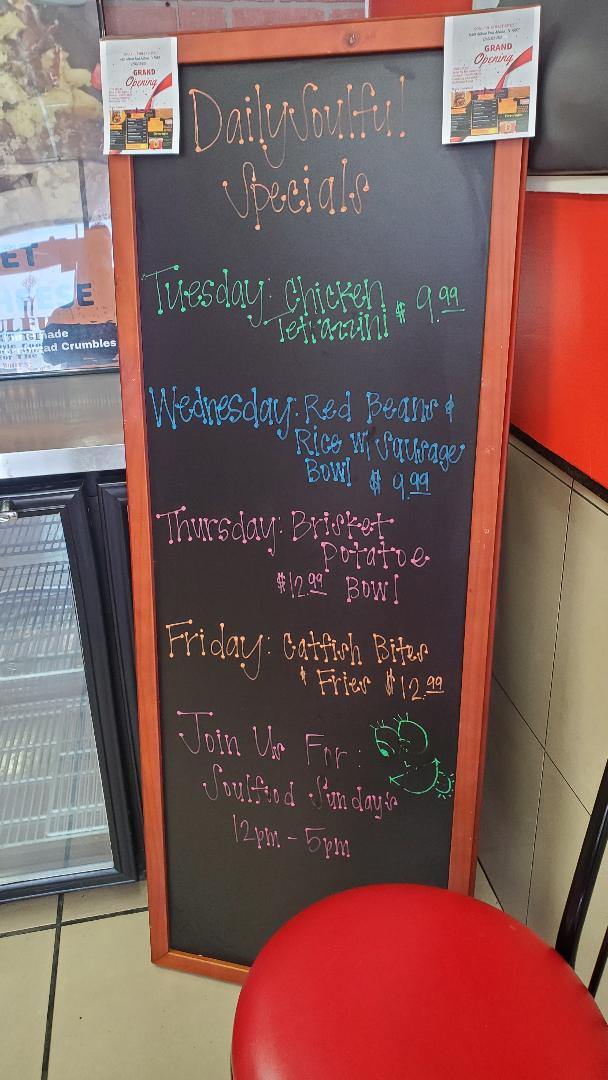 GRAND
Opening
GRAND
Opening
Daily Soulful
Specials
Tuesday: Chicken
Tetrazzini $9.99
Wednesday: Red Beans &
Rice w/ Sausage
Bowl $9.99
Thursday: Brisket
Potatoe
$12.99 Bowl
Friday: Catfish Bites
& Fries $12.99
Join Us For:
Soulfood Sundays
12pm - 5pm
ET
made
ad Crumbles